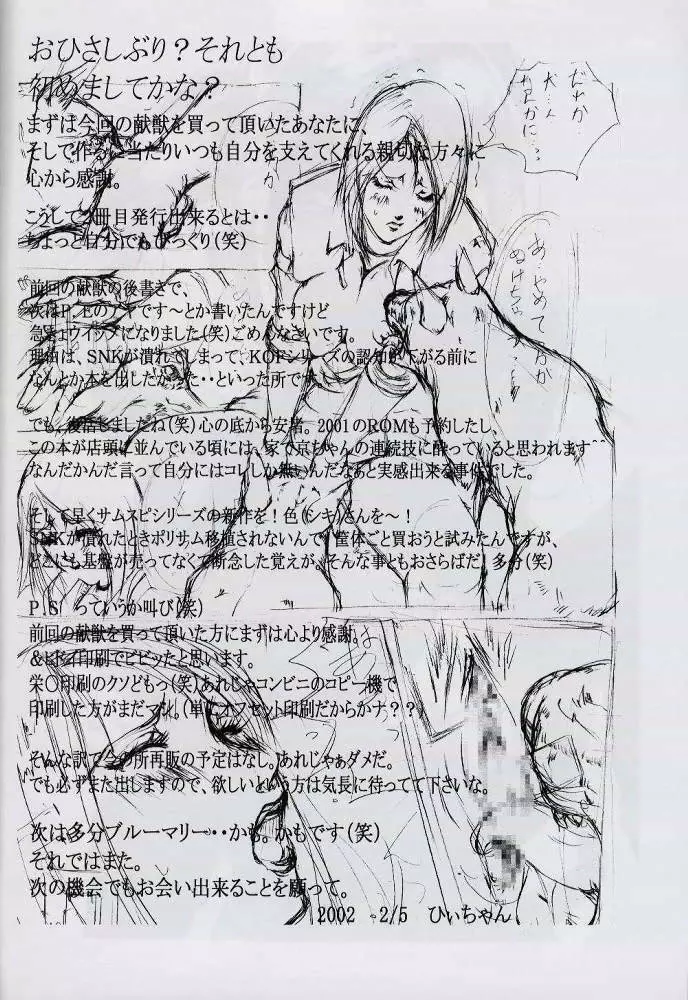 おひさしぶり？それとも
初めましてかな？
まずは今回の献獣を買って頂いたあなたに、
そして作るに当たりいつも自分を支えてくれる親切な方々に
心から感謝。
こうして2冊目発行出来るとは・・
ちょっと自分でもびっくり(笑)
前回の献獣の後書きで、
次はP.Eのアヤです～とか書いたんですけど
急きょウイップになりました(笑)ごめんなさいです。
理由は、SNKが潰れてしまって、KOFシリーズの認知が下がる前に
なんとか本を出したかった・・といった所です。
でも、復活しましたね(笑)心の底から安堵。2001のROMも予約したし、
この本が店頭に並んでいる頃には、家で京ちゃんの連続技に酔っていると思われます^^
なんだかんだ言って自分にはコレしか無いんだなあと実感出来る事件でした。
そして早くサムスピシリーズの新作を！色(シキ)さんを～！
SNKが潰れたときポリサム移植されないんで、筐体ごと買おうと試みたんですが、
どこにも基盤が売ってなくて断念した覚えが。そんな事ともおさらばだ！多分(笑)
P.S っていうか叫び(笑)
前回の献獣を買って頂いた方にまずは心より感謝。
&ヒドイ印刷でビビッたと思います。
栄〇印刷のクソどもっ(笑)あれじゃコンビニのコピー機で
印刷した方がまだマシ。(単にオフセット印刷だからかナ？？
そんな訳で今の所再販の予定はなし。あれじゃぁダメだ。
でも必ずまた出しますので、欲しいという方は気長に待ってて下さいな。
次は多分ブルーマリー・・かも。かもです(笑)
それではまた。
次の機会でもお会い出来ることを願って。
2002 2/5 ひぃちゃん